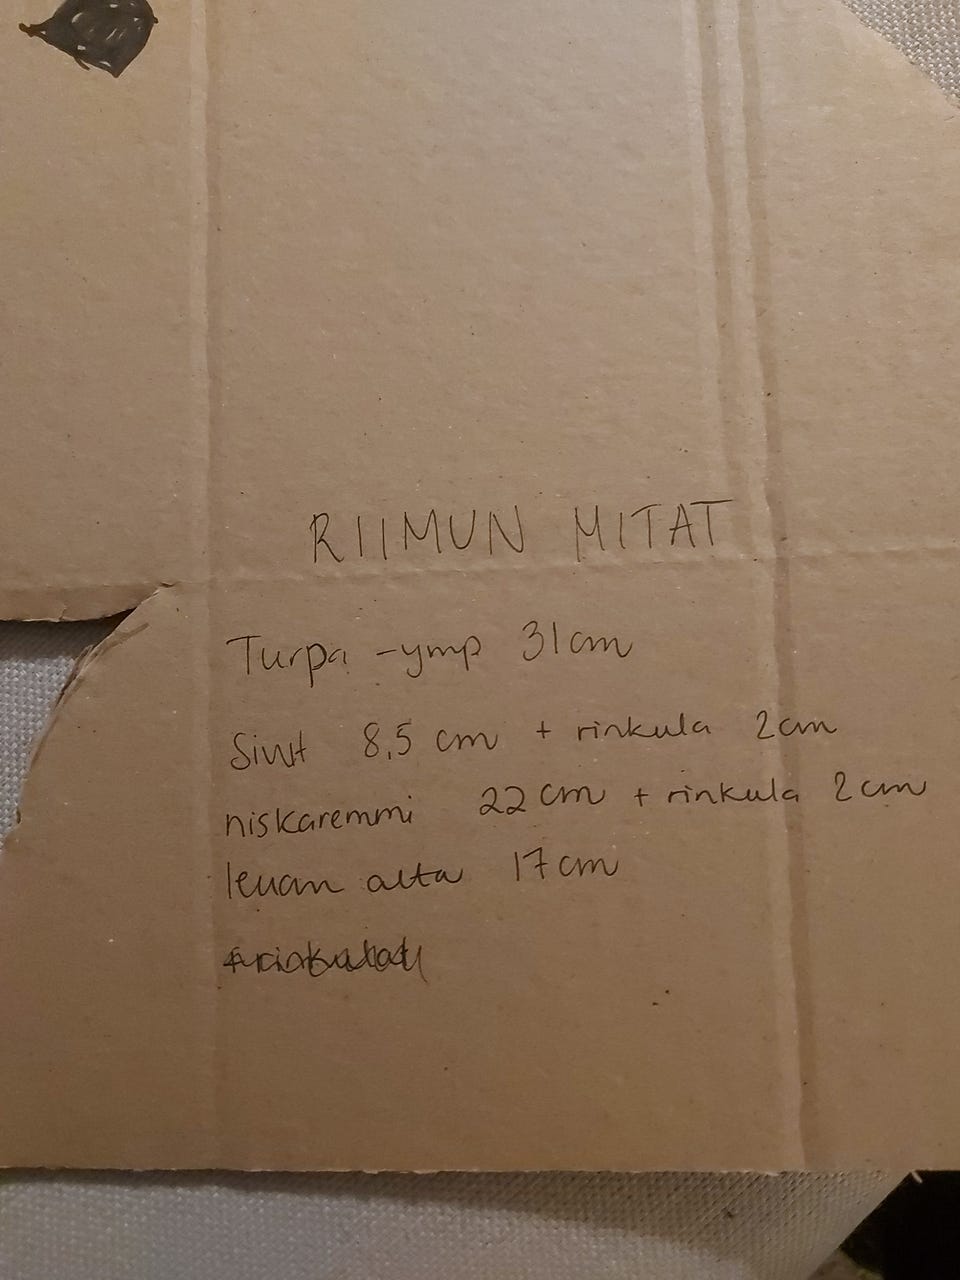 RIIMUN MITAT
Turpa -ymp 31cm
Sivut 8,5 cm + rinkula 2cm
niskaremmi 22cm + rinkula 2cm
leuan alta 17cm